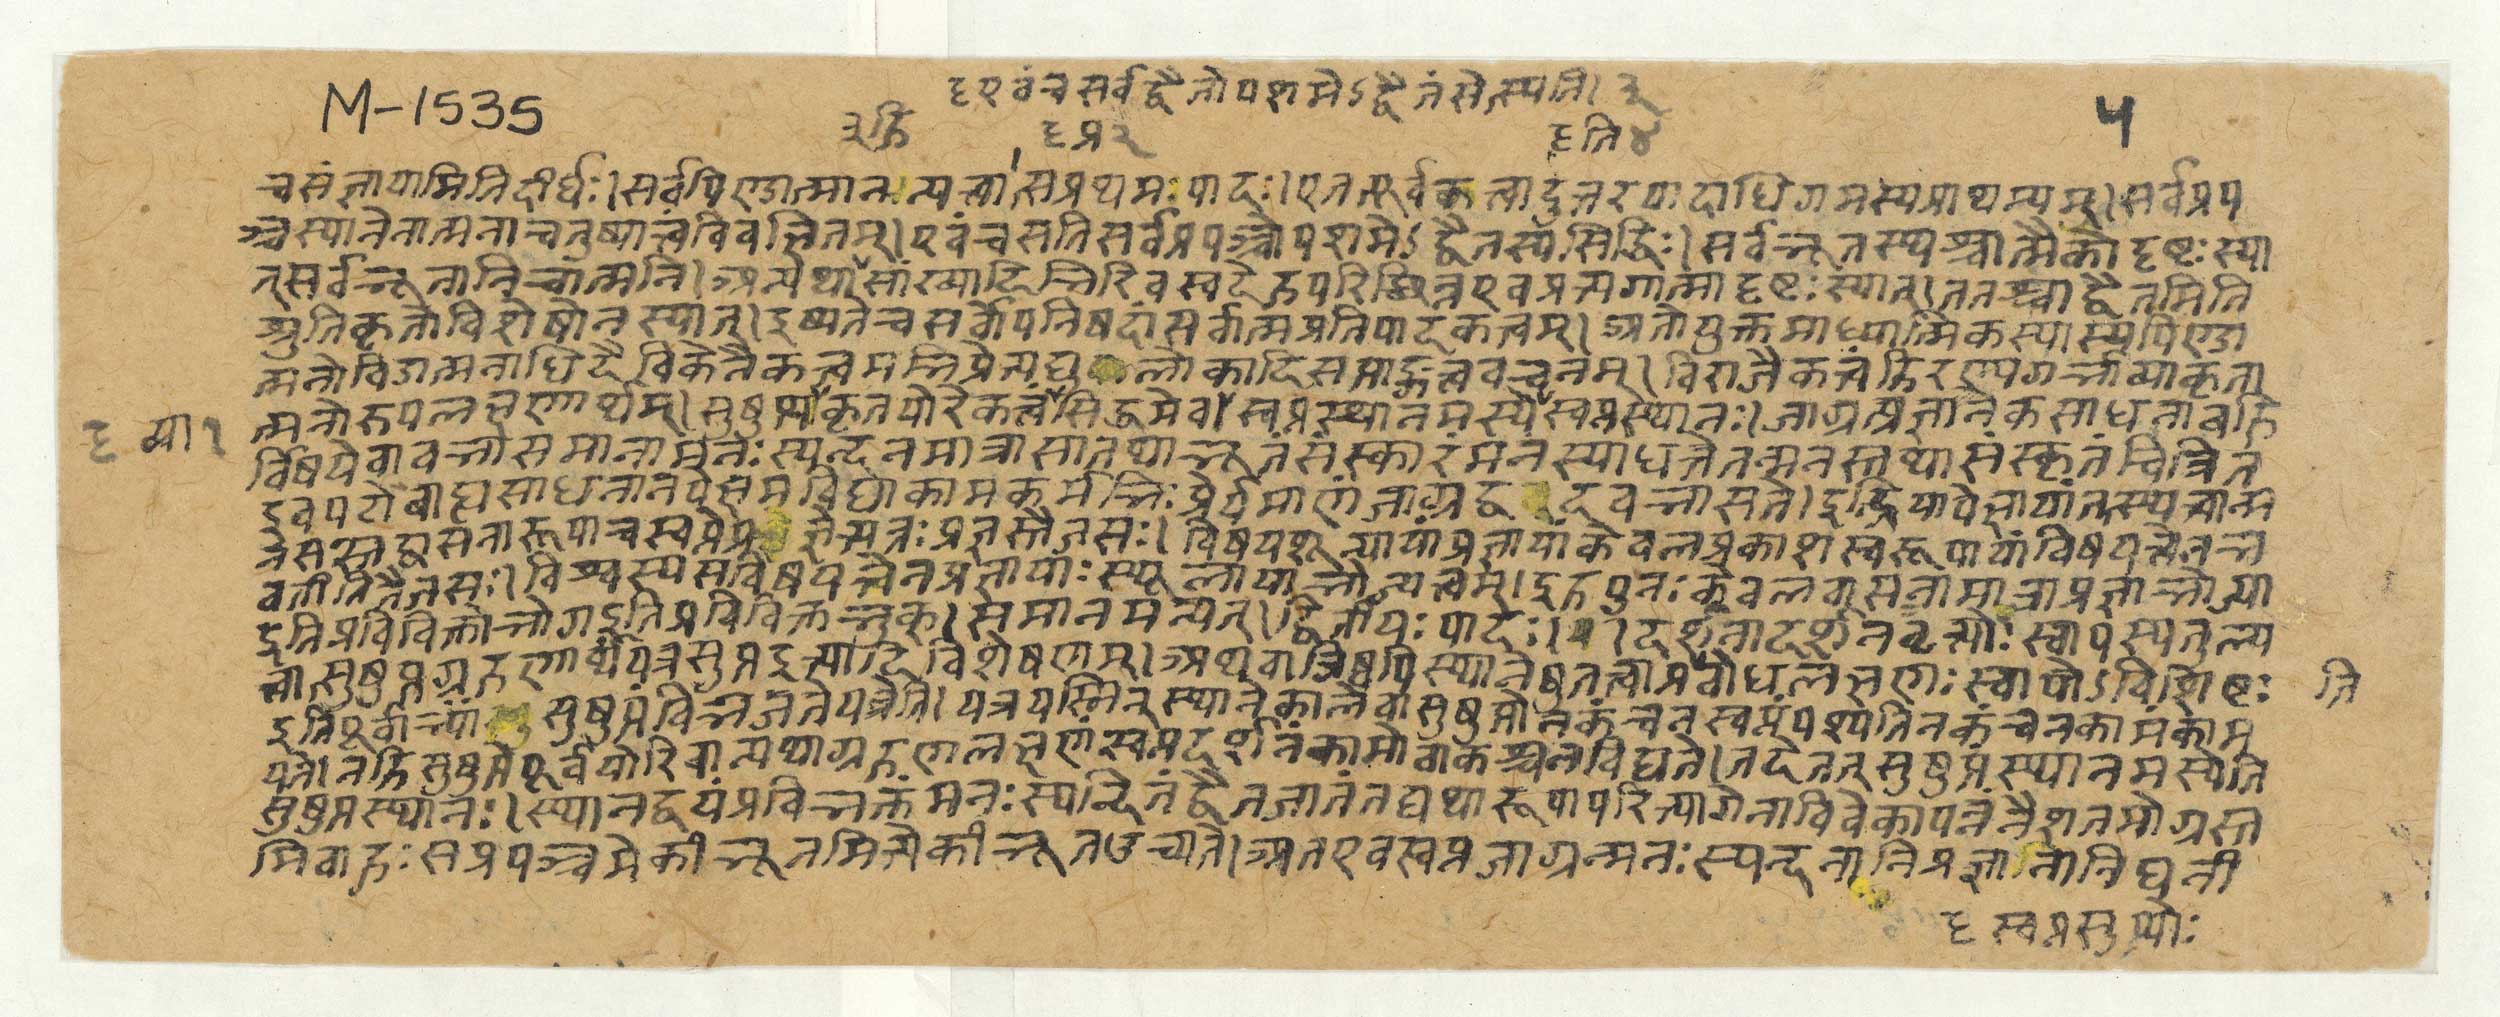 M-1535
ξ एवं च सर्वद्वैतोपशमेऽद्वैतं सेत्स्यति। ३
३ हि ξ प्त २ ξ ति ४
५
च संज्ञायामिति दीर्घः। सर्वपिण्डात्मानन्यत्वात्स प्रथमः पादः। एतत्पूर्वकत्वादुत्तरपादाधिगमस्य प्राथम्यम्। सर्वप्रप
ञ्चस्यानेनात्मना चतुष्पात्त्वं विवक्षितम्। एवं च सति सर्वप्रपञ्चोपशमेऽद्वैतस्य सिद्धिः। सर्वभूतस्थश्चात्मैको दृष्टः स्या
त् सर्वभूतानि चात्मनि। अन्यथा सांख्यादिभिरिव स्वदेहपरिच्छिन्न एव प्रत्यगात्मा दृष्टः स्यात्। ततश्चाद्वैतमिति
श्रुतिकृतो विशेषो न स्यात्। इष्यते च सर्वोपनिषदां सर्वात्मप्रतिपादकत्वम्। अतो युक्तमाध्यात्मिकस्यास्य पिण्डा
त्मनो विडात्मनाधिदैविकेनैकत्वमभिप्रेत्य द्युलोकादिसप्ताङ्गत्ववचनम्। विराजैकत्वं हि हिरण्यगर्भाव्याकृता
त्मनोरुपलक्षणार्थम्। सुषुप्ताव्याकृतयोरेकत्वं सिद्धमेव। स्वप्नस्थानमस्य स्वप्नस्थानः। जाग्रत्प्रज्ञानेकसाधना बहि
ξ व्या १
र्विषयेवावभासमाना मनःस्पन्दनमात्रा सा तथाभूतं संस्कारं मनस्याधत्ते तन्मनस्तथा संस्कृतं चित्रित
इव पटो बाह्यसाधनानपेक्षमविद्याकामकर्मभिः प्रेर्यमाणं जाग्रद्वदवभासते। इन्द्रियापेक्षायां तस्य चान्म
नसस्तद्वासनारूपा च स्वप्ने प्रज्ञेत्यन्तःप्रज्ञस्तैजसः। विषयशून्यायां प्रज्ञायां केवलप्रकाशस्वरूपायां विषयत्वेन भ
वतीति तैजसः। विश्वस्य सविषयत्वेन प्रज्ञायाः स्थूलाया भोज्यत्वम्। इह पुनः केवलवासनामात्रा प्रज्ञा भोज्या
इति प्रविविक्तो भोग इति प्रविविक्तभुक्। समानमन्यत्। द्वितीयः पादः। ४। दर्शनादर्शनवृत्त्योः स्वापस्य तुल्य
त्वात्सुषुप्तग्रहणार्थं यत्र सुप्त इत्यादि विशेषणम्। अथवा त्रिष्वपि स्थानेषु तत्त्वाप्रबोधलक्षणः स्वापोऽविशिष्टः
ति
इति पूर्वाभ्यां सुषुप्तं विभजते यत्रेति। यत्र यस्मिन् स्थाने काले वा सुषुप्तो न कंचन स्वप्नं पश्यति न कंचन कामं काम
यते। न हि सुषुप्ते पूर्वयोरिवान्यथाग्रहणलक्षणं स्वप्नदर्शनं कामो वा कश्चन विद्यते। तदेतत् सुषुप्तं स्थानमस्येति
सुषुप्तस्थानः। स्थानद्वयं प्रविभक्तं मनःस्पन्दितं द्वैतजातं तद्यथारूपापरित्यागेनाविवेकापन्नं नैशतमोग्रस्त
मिवाहः सप्रपञ्चमेकीभूतमित्येकीभूत उच्यते। अत एव स्वप्नजाग्रन्मनःस्पन्दनानि प्रज्ञानानि घनी
ξ स्वप्नसुप्त्योः